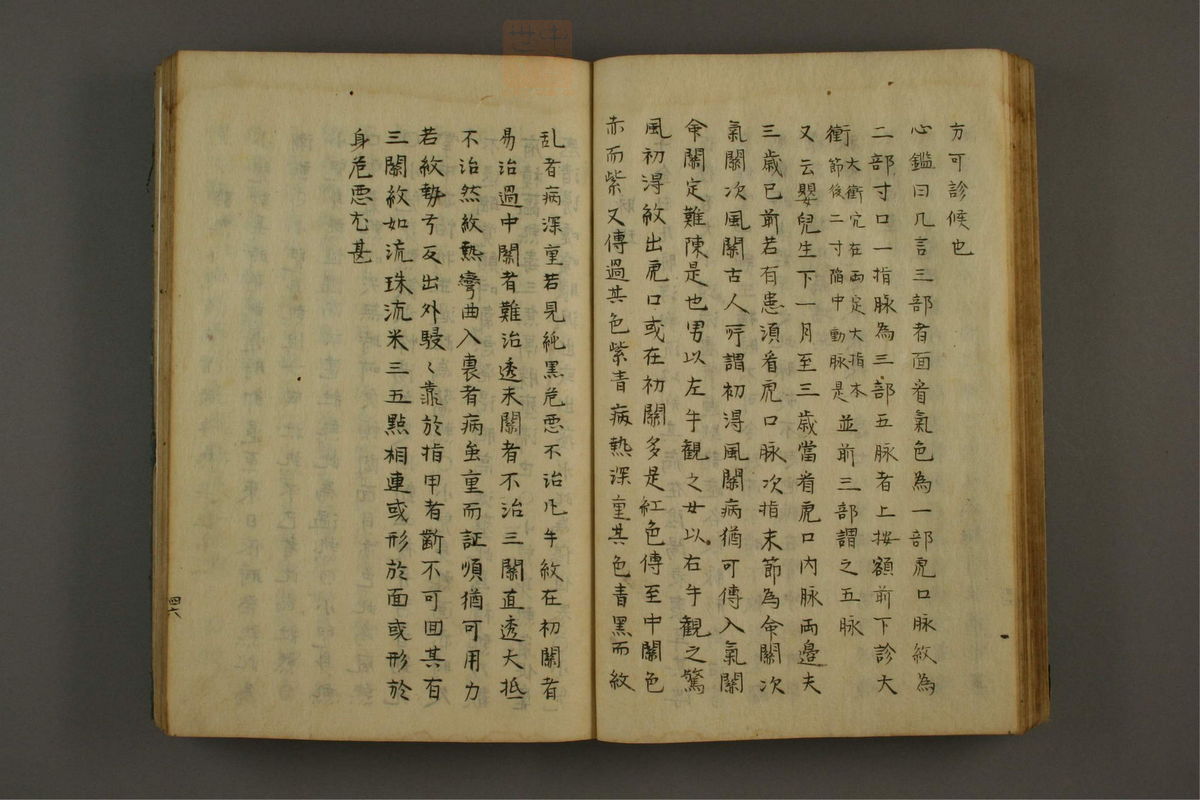 方可診候也
心鑑曰凡言三部者面看氣色為一部虎口脉紋為
二部寸口一指脉為三部五脉者上按額前下診大
衝大衝穴在両足大指本節後二寸陥中動脉是並前三部謂之五脉
又云嬰兒生下一月至三歳當看虎口内脉両邉夫
三歳已前若有患湏看虎口脉次指末節為命關次
氣關次風關古人所謂初淂風關病猶可傳入氣關
命關定難陳是也男以左手観之女以右手観之驚
風初淂紋出虎口或在初關多是紅色傳至中關色
赤而紫又傳過其色紫青病熱深重其色青黒而紋
乱者病深重若見純黒危悪不治凡手紋在初關者
易治過中關者難治透末關者不治三關直透大抵
不治然紋熱彎曲入裏者病虽重而証順猶可用力
若紋勢弓反出外駸〻靠於指甲者断不可回其有
三關紋如流珠流米三五點相連或形於面或形於
身危悪尤甚
四六